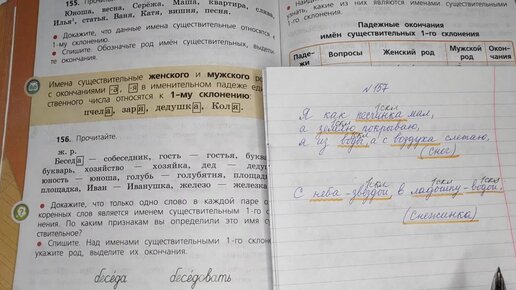 155.
Юноша, весна, Серёжа, Маша, квартира, слава,
Илья¹, статья, Ваня, Катя, вишня, песня.
• Докажите, что данные имена существительные относятся к
1-му склонению.
• Спишите. Обозначьте род имён существительных, выделите
окончания.
Имена существительные женского и мужского ро
с окончаниями -а, -я в именительном падеже един
ственного числа относятся к 1-му склонению:
пчела, заря, дедушка, Коля.
156. Прочитайте.
ж. р.
Беседа — собеседник, гость — гостья, буква
букварь, хозяйство — хозяйка, дед — дедуш
юность — юноша, голубь — голубятня, площадь
площадка, Иван — Иванушка, железо — железка.
• Докажите, что только одно слово в каждой паре од
коренных слов является именем существительным 1-го скл
нения. По каким признакам вы определили это имя су
ствительное?
• Спишите. Над именами существительными 1-го склоне
укажите род, выделите их окончания.
беседа беседовать
узнать, какие из них являются именами существительными
1-го склонения.
Падежные окончания
имён существительных 1-го склонения
Паде-
жи
Вопросы
Женский род
Мужской
род
Окон-
чания
№ 157
1скл
Я как песчинка мал,
1скл
а землю покрываю,
1скл
я из воды, а с воздуха слетаю,
(Снег)
1скл 1скл 1скл
С неба – звездой, в ладошку – водой.
(Снежинка)